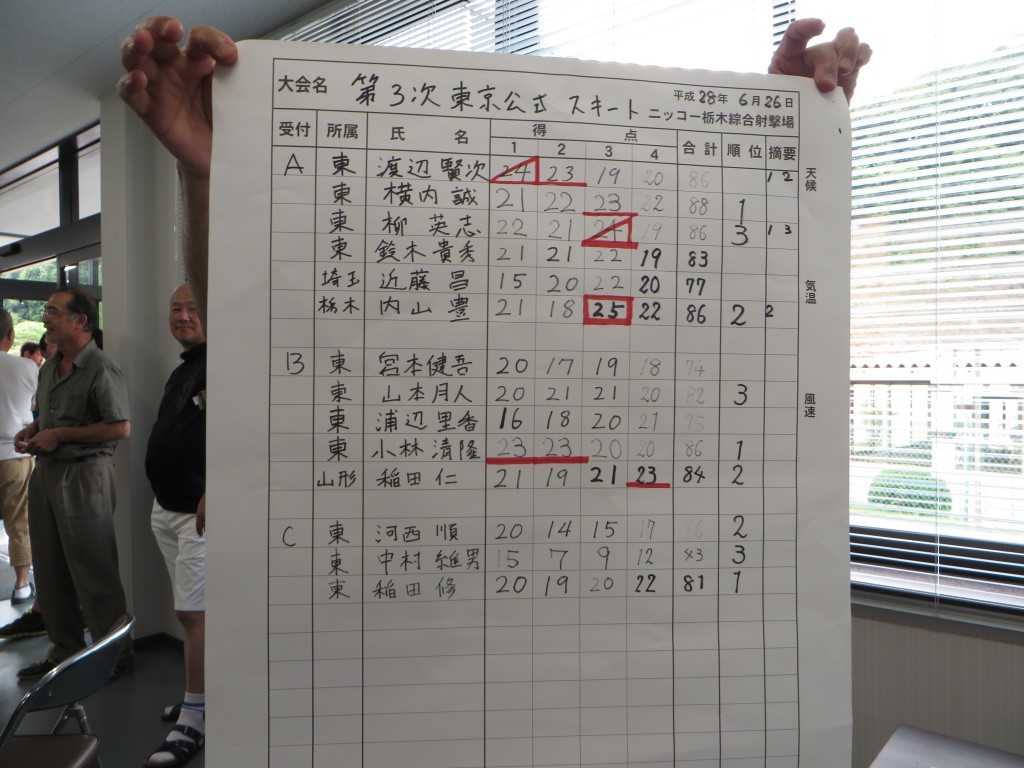 大会名 第3次東京公式 スキート ニッコー栃木綜合射撃場 平成28年6月26日
受付 所属 氏名 得点 合計 順位 摘要
1 2 3 4
A 東 渡辺賢次 24 23 19 20 86 12
東 横内誠 21 22 23 22 88 1
東 柳英志 22 21 24 19 86 3 13
東 鈴木貴秀 21 21 22 19 83
埼玉 近藤昌 15 20 22 20 77
栃木 内山豊 21 18 25 22 86 2 2
B 東 宮本健吾 20 17 19 18 74
東 山本月人 20 21 21 20 82 3
東 浦辺里香 16 18 20 21 75
東 小林清隆 23 23 20 20 86 1
山形 稲田仁 21 19 21 23 84 2
C 東 河西順 20 14 15 17 66 2
東 中村維男 15 7 9 12 43 3
東 稲田修 20 19 20 22 81 1
天候
気温
風速